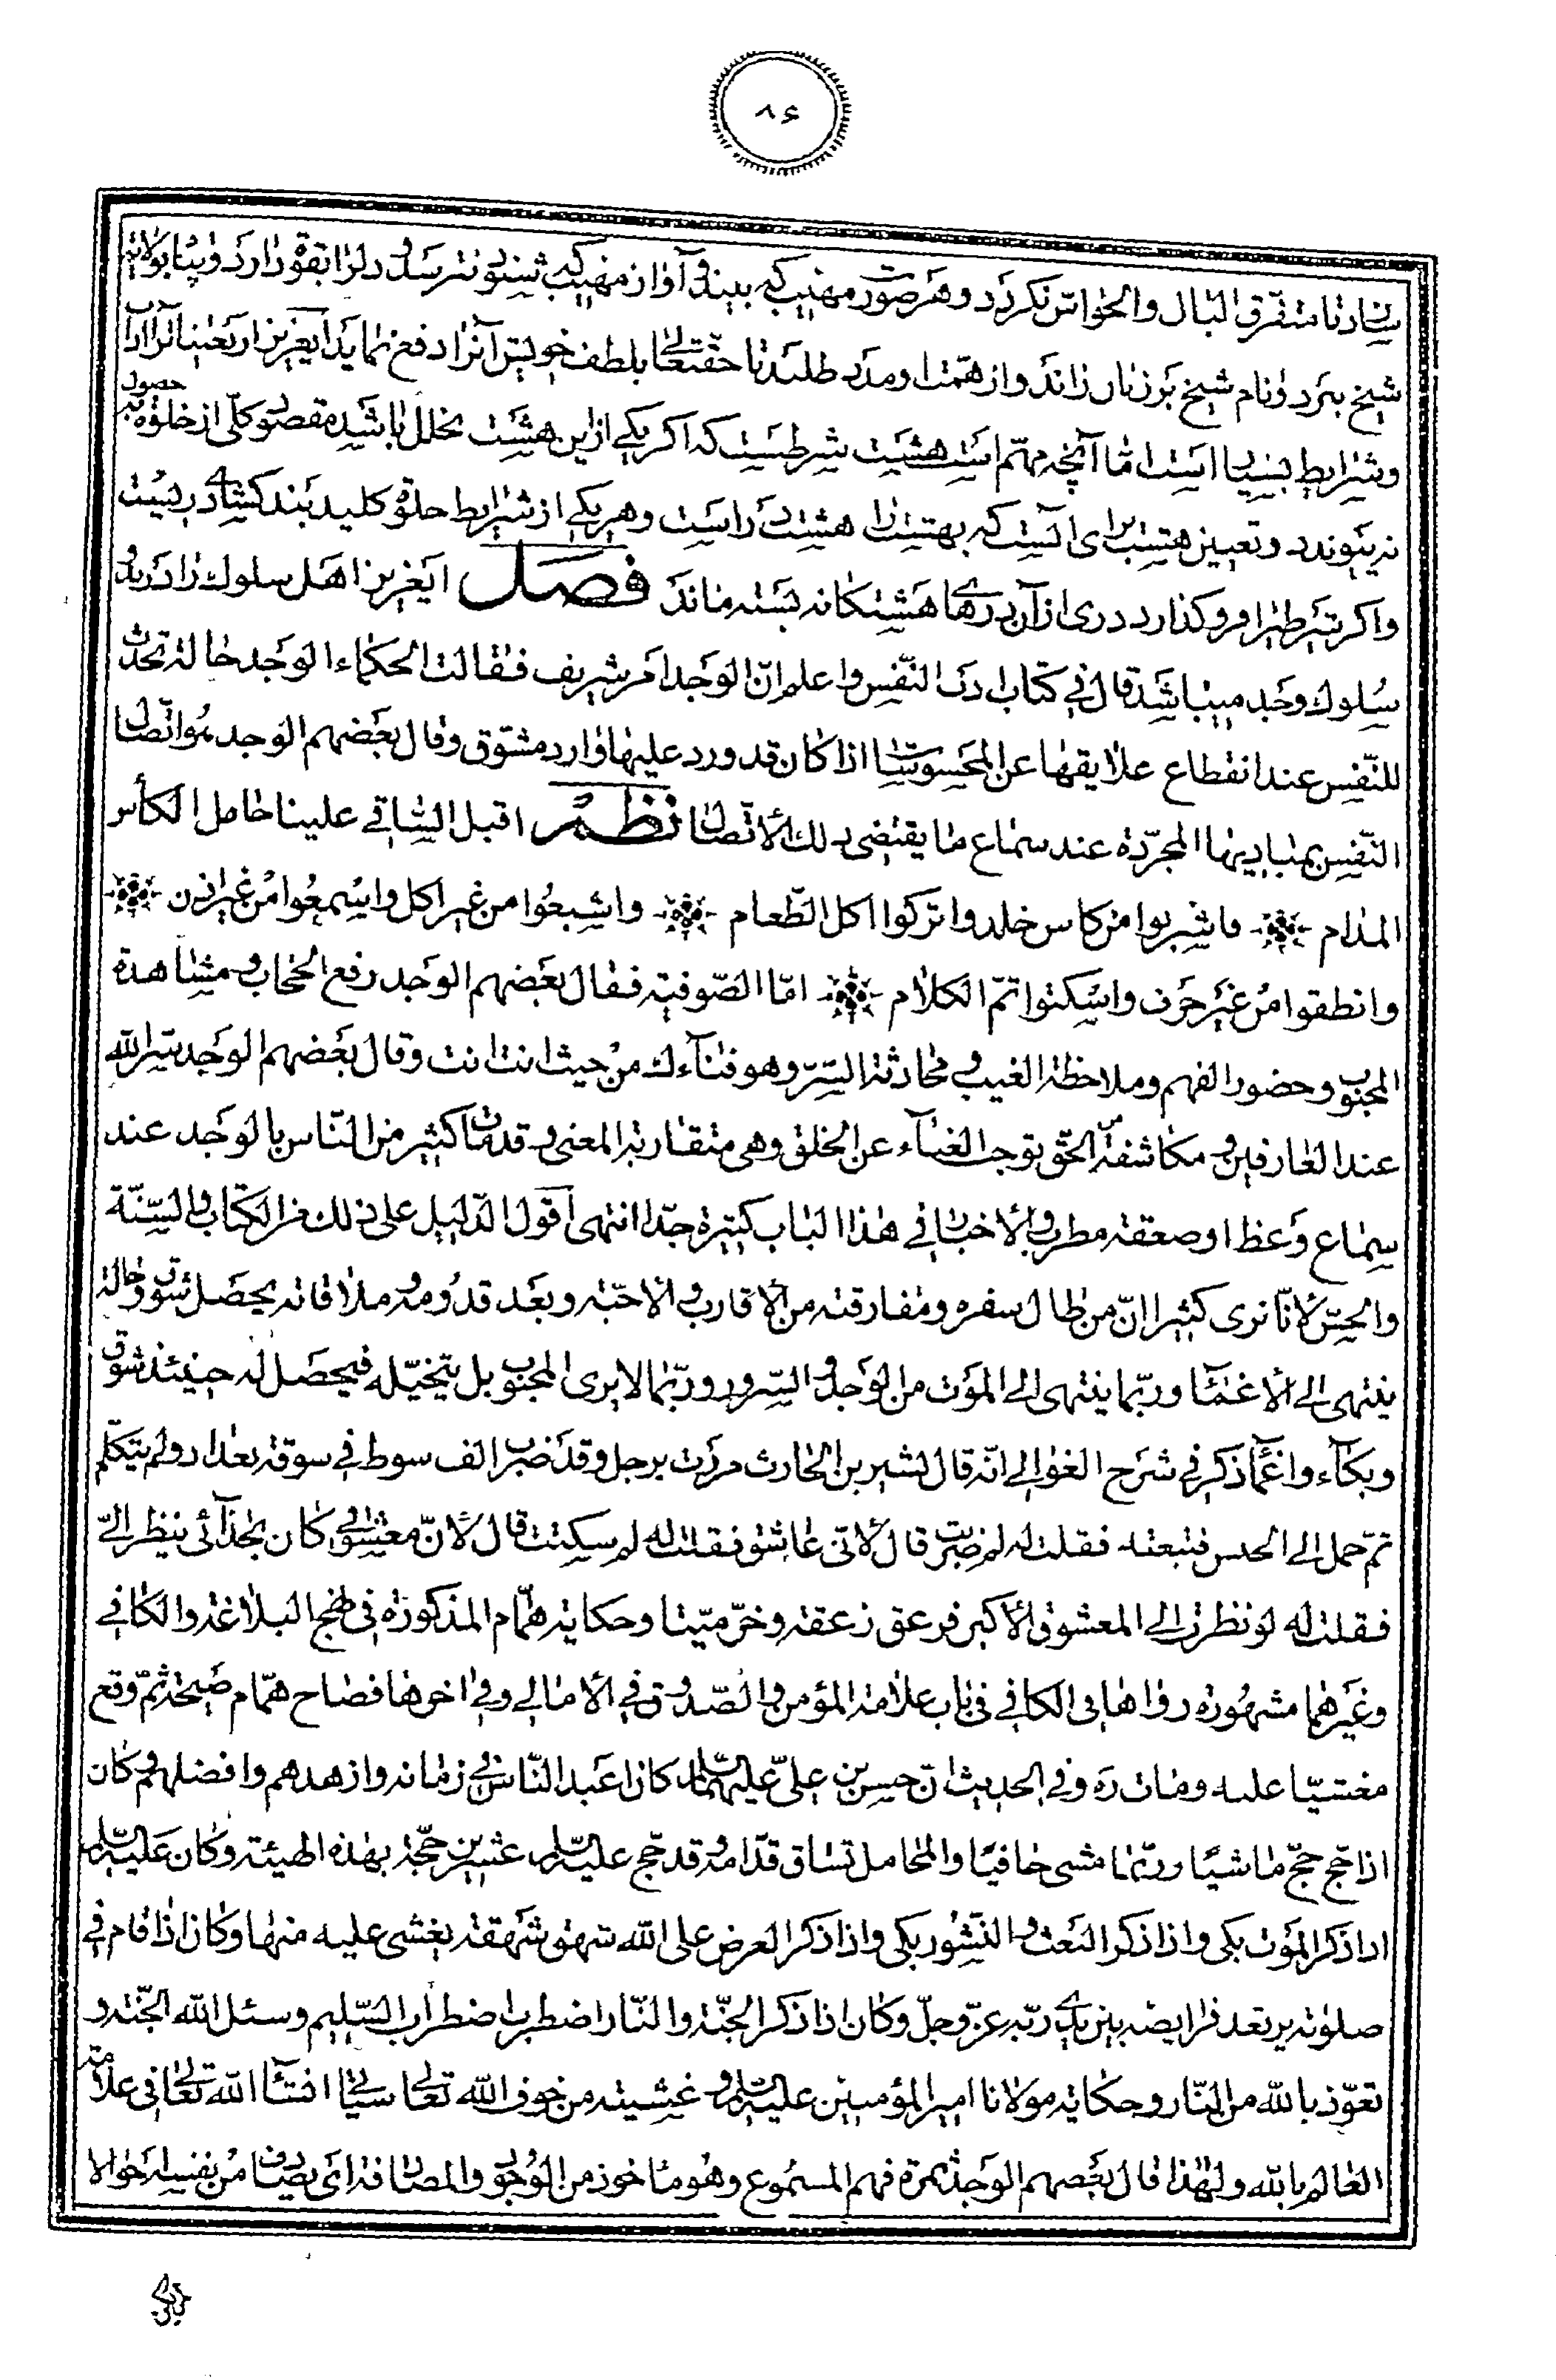 ۸۶
سازد تا متفرق البال والحواس نکردد و هر صورت مهیب که بیند و آواز مهیب که شنود نترسد و دلرا بقوة دارد و پناه بولایت
شیخ برد و نام شیخ بر زبان راند و از همت او مدد طلبد تا حقتعالی بلطف خویش آنرا دفع نماید ایعزیز اربعین را آداب
و شرایط بسیار است اما آنچه مهم است هشت شرطست که اکر یکی از این هشت بخلل باشد مقصود کلی از خلوة بحصول
نپیوندد و تعیین هشت برای آنست که بهشت را هشت در است و هر یکی از شرایط خلوة کلید بند کشای دریست
و اکر شرطیرا فرو کذارد دری از آن درهای هشتکانه بسته ماند فصل ایعزیز اهل سلوک را در بدو
سلوک وجد میباشد قال فی کتاب ادب النفس واعلم ان الوجد امر شریف فقالت الحکماء الوجد حالة تحدث
للنفس عند انقطاع علایقها عن المحسوسات اذا کان قد ورد علیها وارد مشوق وقال بعضهم الوجد هو اتصال
النفس بمبادیها المجردة عند سماع ما یقتضی ذلک الاتصال نظم اقبل الساقی علینا حامل الکأس
المدام فاشربوا من کاس خلد واترکوا اکل الطعام واشبعوا من غیر اکل واسمعوا من غیر اذن
وانطقوا من غیر حرف واسکتوا تم الکلام اما الصوفیة فقال بعضهم الوجد رفع الحجاب و مشاهدة
المحبوب و حضور الفهم و ملاحظة الغیب و محادثة السر و هو فناءک من حیث انت انت وقال بعضهم الوجد سر الله
عند العارفین و مکاشفة من الحق توجب الغناء عن الخلق و هی متقاربة المعنی و قد مات کثیر من الناس بالوجد عند
سماع وعظ او صعقة مطرب والاخبار فی هذا الباب کثیرة جدا انتهی اقول الدلیل علی ذلک من الکتاب والسنة
والحس لانا نری کثیرا ان من طال سفره و مفارقته من الاقارب والاحبة و بعد قدومه و ملاقاته یحصل شوق و حالة
ینتهی الی الاغماء وربما ینتهی الی الموت من الوجد والسرور وربما لا یری المحبوب بل یتخیله فیحصل له حینئذ شوق
وبکاء واغماء ذکر فی شرح الغوالی انه قال بشیر بن الحارث مررت برجل وقد ضرب الف سوط فی سوقة بغداد ولم یتکلم
ثم حمل الی الحبس فتبعته فقلت له لم ضربت قال لانی عاشق فقلت له لم سکتت قال لان معشوقی کان بحذائی ینظر الی
فقلت له لو نظرت الی المعشوق الاکبر فزعق زعقة و خر میتا و حکایة همام المذکورة فی نهج البلاغة والکافی
وغیرهما مشهورة رواها فی الکافی فی باب علامة المؤمن والصدوق فی الامالی و فی اخرها فصاح همام صیحة ثم وقع
مغشیا علیه ومات ره و فی الحدیث ان حسن بن علی علیهما السلام کان اعبد الناس فی زمانه وازهدهم وافضلهم و کان
اذا حج حج ماشیا وربما مشی حافیا والمحامل تساق قدامه و قد حج علیه السلام عشرین حجة بهذه الهیئة وکان علیه السلام
اذا ذکر الموت بکی واذا ذکر البعث والنشور بکی واذا ذکر العرض علی الله شهق شهقة یغشی علیه منها وکان اذا قام فی
صلوته یرتعد فرایضه بین یدی ربه عز وجل وکان اذا ذکر الجنة والنار اضطرب اضطراب السلیم وسئل الله الجنة و
تعوذ بالله من النار و حکایة مولانا امیر المؤمنین علیه السلام و غشیته من خوف الله تعالی سیاتی انشاء الله تعالی فی علامة
العالم بالله ولهذا قال بعضهم الوجد ثمرة فهم المسموع و هو ماخوذ من الوجود والمصادفة ای یصادف من نفسه احوالا